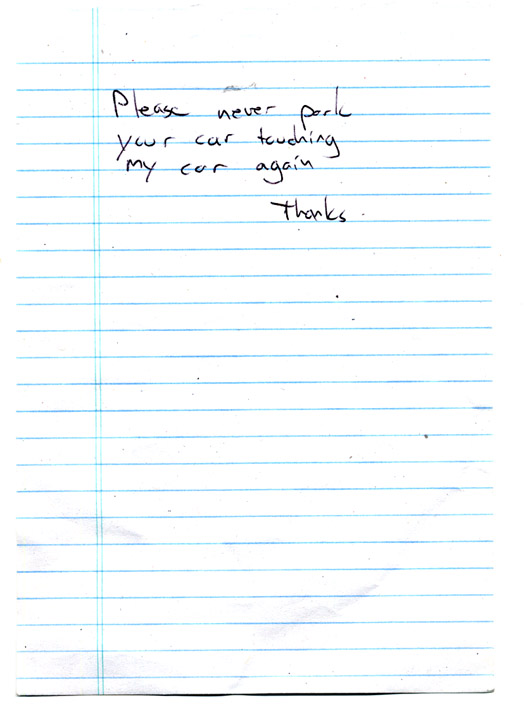 Please never park
your car touching
my car again
Thanks.